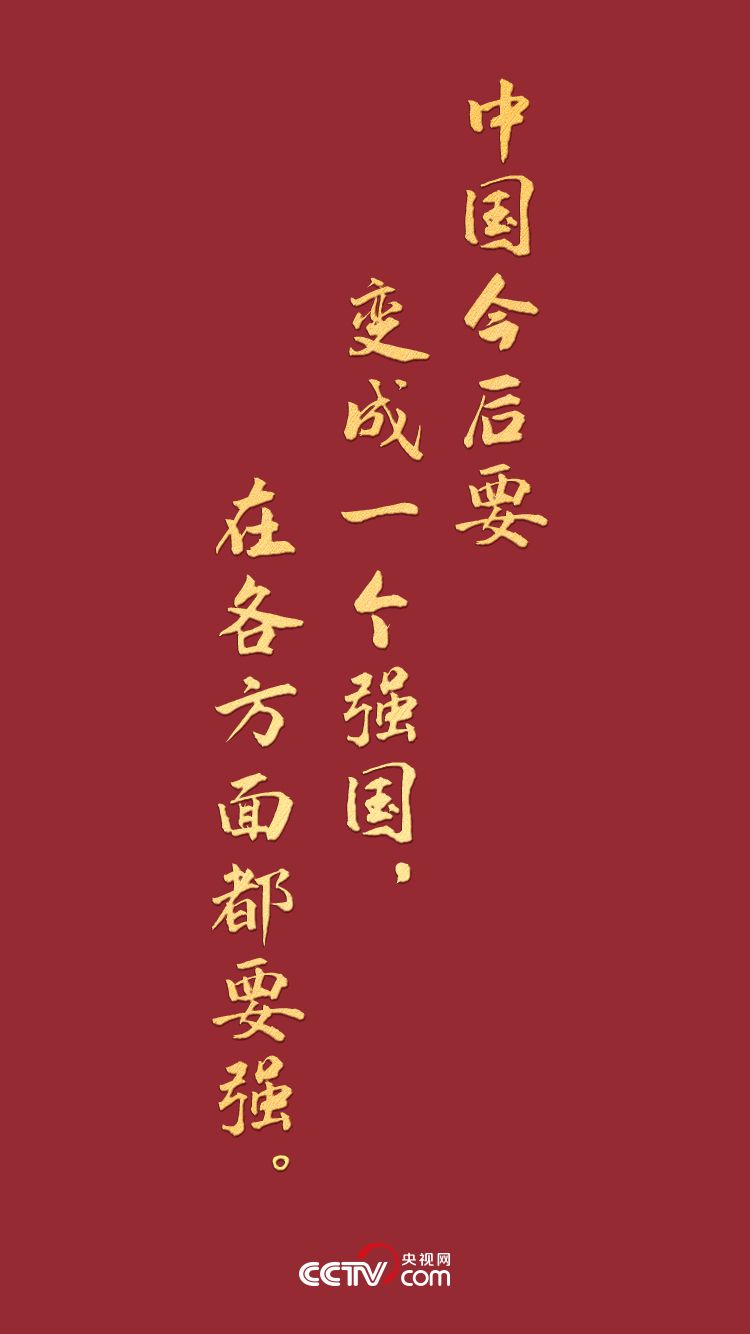 中国今后要
变成一个强国，
在各方面都要强。
CCTV 央视网
com